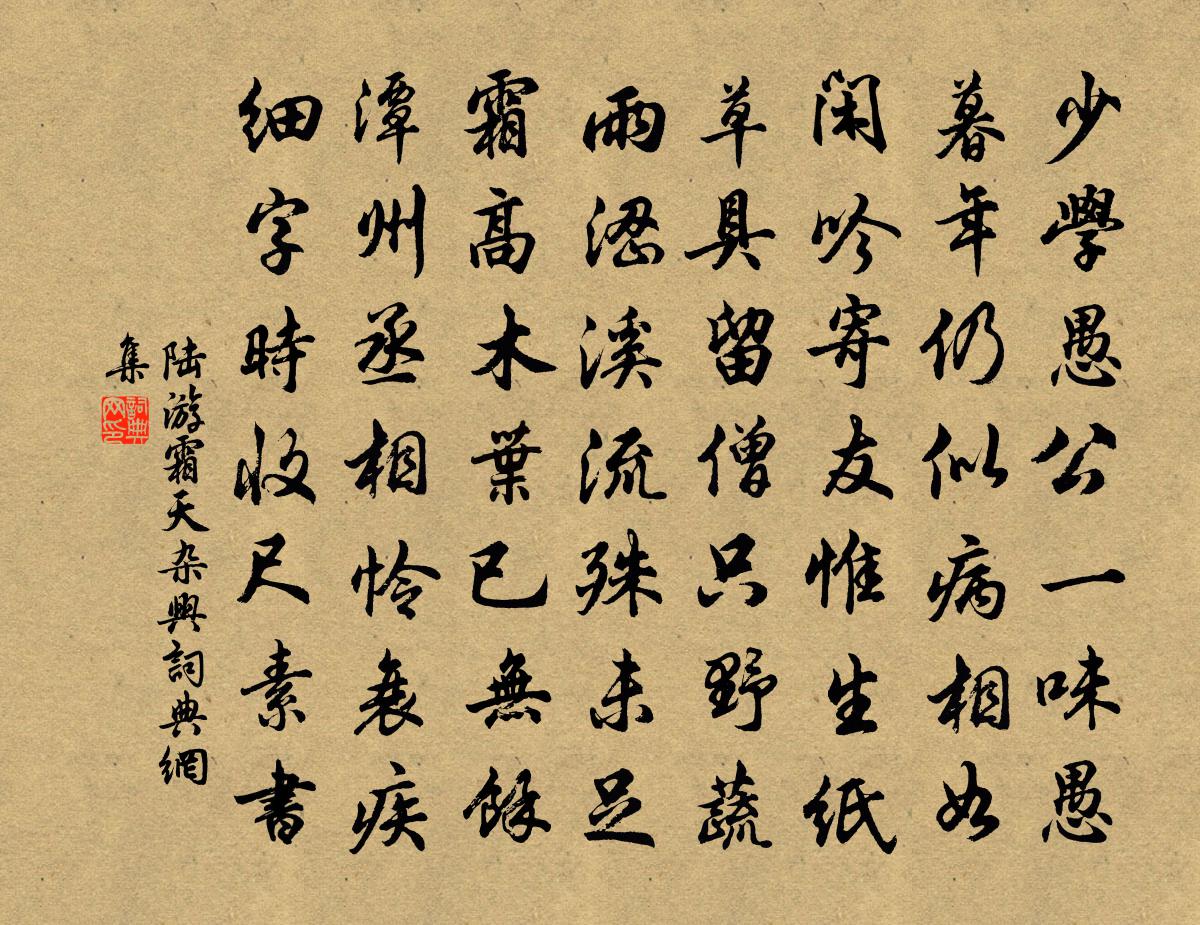 少學愚公一味愚
暮年仍似病相如
閑吟寄友惟生紙
草具留僧只野蔬
雨澀溪流殊未足
霜高木葉已無餘
潭州丞相怜衰疾
細字時收尺素書
陆游霜天杂興詞典網
集
詞典网印